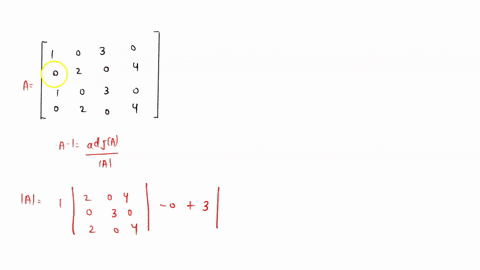 1 0 3 0
0 2 0 4
A=
1 0 3 0
0 2 0 4
A-1= adj(A)
|A|
|A|= 1 | 2 0 4 | -0 + 3 |
0 3 0
2 0 4